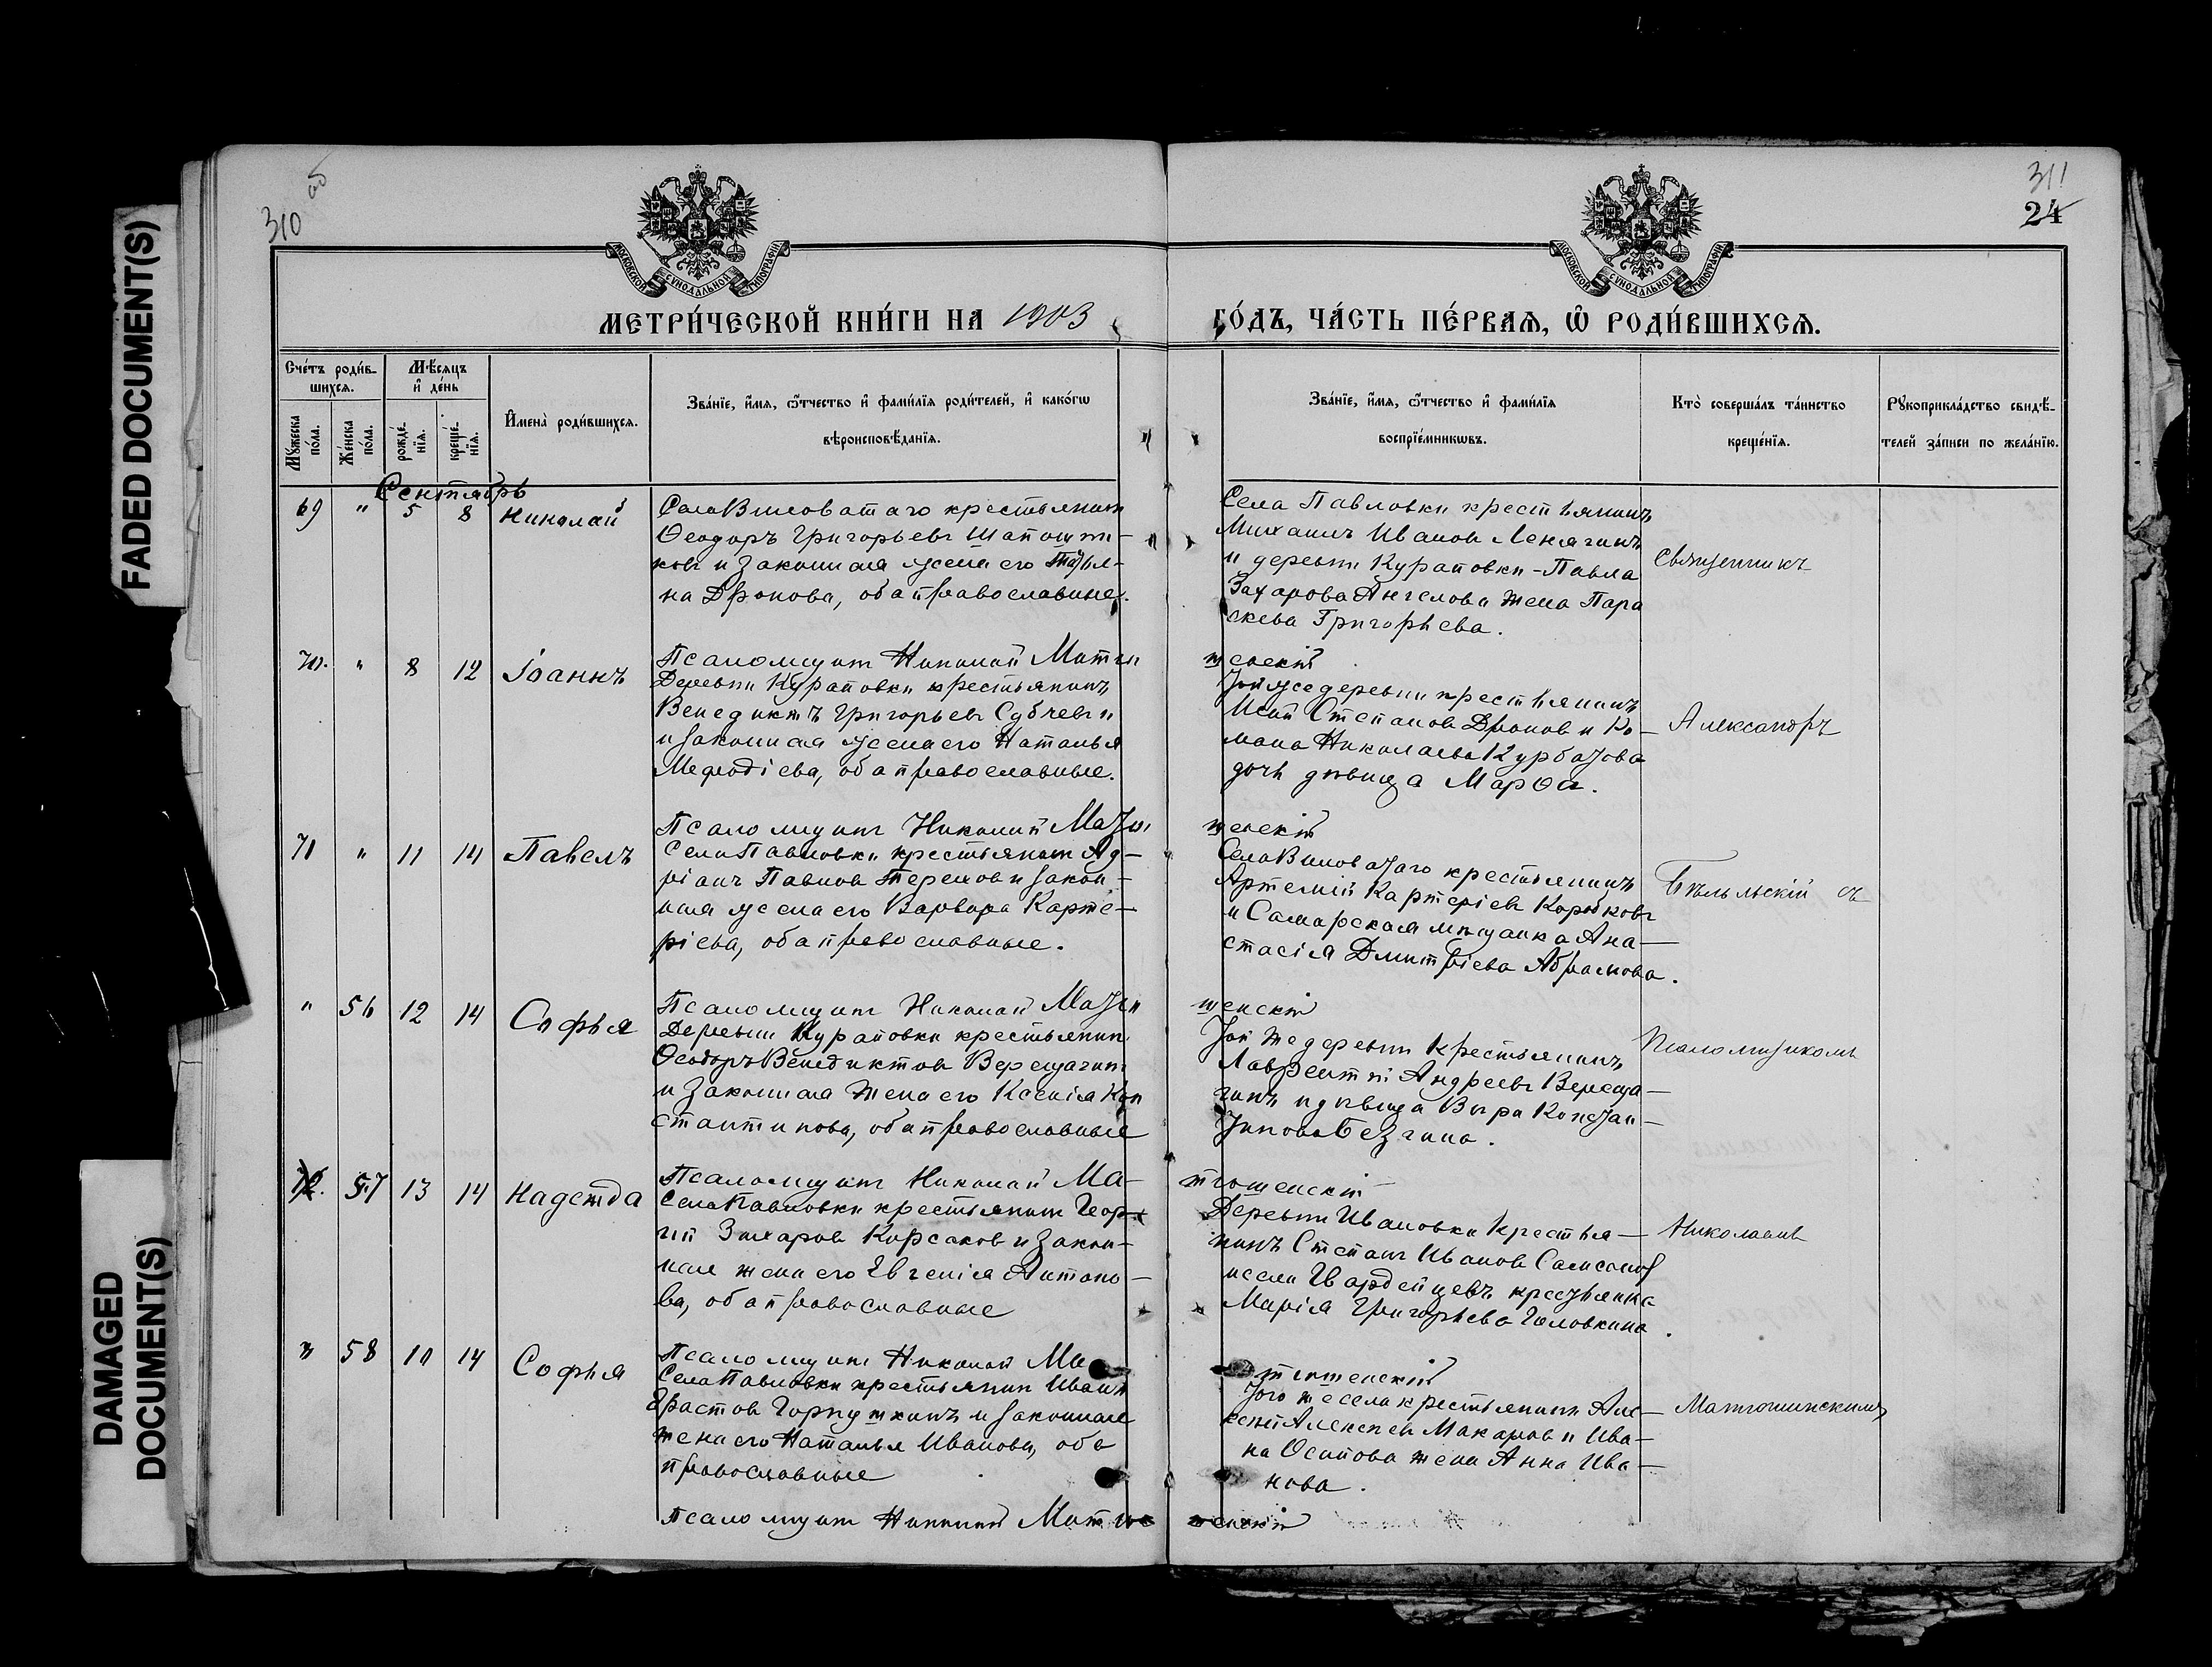 FADED DOCUMENT(S)
DAMAGED
DOCUMENT(S)
310
об
311
24
МОСКОВСКОЙ СУНОДАЛЬНОЙ ТИПОГРАФІИ
МОСКОВСКОЙ СУНОДАЛЬНОЙ ТИПОГРАФІИ
МЕТРИ́ЧЕСКОЙ КНИ́ГИ НА 1903
ГО́ДЪ, ЧА́СТЬ ПЕ́РВАѦ, Ѽ РОДИ́ВШИХСѦ.
Сче́тъ роди́в-
шихсѧ.
Мѣ́сѧцъ
и҆ де́нь
Мꙋжеска
по́ла.
Же́нска
по́ла.
рожде́-
нїѧ.
креще́-
нїѧ.
И҆мена̀ роди́вшихсѧ.
Зва́нїе, и҆́мѧ, ѻ҆́тчество и҆ фами́лїѧ роди́телей, и҆ како́гѡ
вѣроисповѣ́данїѧ.
Зва́нїе, и҆́мѧ, ѻ҆́тчество и҆ фами́лїѧ
воспрїе́мникѡвъ.
Кто̀ соверша́лъ та́инство
креще́нїѧ.
Рꙋкоприкла́дство свидѣ́-
телей за́писи по жела́нїю.
Сентябрь
69 " 5 8 Николай
Села Виловатаго крестьянинъ
Ѳеодоръ Григорьевъ Шапошни-
ковъ и законная жена его
на Дронова, оба православные.
Села Павловки крестьянинъ
Михаилъ Ивановъ Ленягинъ
и деревни Курановки - Павла
Захарова Ангелова жена Пара
скева Григорьева.
Священникъ
Псаломщикъ Николай Матю
шенскій
70. " 8 12 Іоаннъ
Деревни Курановки крестьянинъ
Венедиктъ Григорьевъ и
и законная жена его Наталья
Меѳодіева, оба православные.
Той же деревни крестьянинъ
Степановъ Дроновъ и Ро-
мана Николаева Курбатова
дочь дѣвица Марѳа.
Александръ
Псаломщикъ Николай Матю
шенскій
71 " 11 14 Павелъ
Села Павловки крестьянинъ Ад-
ріанъ Павловъ Тереховъ и закон-
ная жена его Варвара Карте-
ріева, оба православные.
Села Виловатаго крестьянинъ
Артемій Картеріевъ Коробковъ
и Самарская мѣщанка Ана-
стасія Дмитріева Абрамова.
Бѣльскій съ
Псаломщикъ Николай Матю
шенскій
" 56 12 14 Софья
Деревни Курановки крестьянинъ
Ѳеодоръ Венедиктовъ Верещагинъ
и законная жена его Ксенія Кон
стантинова, оба православные
Той же деревни крестьянинъ
Лаврентій Андреевъ Вереща-
гинъ и дѣвица Вѣра Констан-
тинова Безгина.
Псаломщикомъ
Псаломщикъ Николай Ма-
тюшенскій
72. 57 13 14 Надежда
Села Павловки крестьянинъ Геор-
гій Захаровъ Корсаковъ и закон-
ная жена его Евгенія Антоно-
ва, оба православные
Деревни Ивановки крестья-
нинъ Степанъ Ивановъ Самсоновъ
и села Гвардейцевъ крестьянка
Марія Григорьева Головкина.
Николаемъ
Псаломщикъ Николай Ма
тюшенскій
" 58 10 14 Софья
Села Павловки крестьянинъ Иванъ
Ерастовъ Горпушкинъ и законная
жена его Наталья Иванова, оба
православные
Того же села крестьянинъ Але-
ксѣй Алексѣевъ Макаровъ и Ива-
на Осипова жена Анна Ива-
нова.
Матюшинскимъ
Псаломщикъ Николай Матю
шенскій